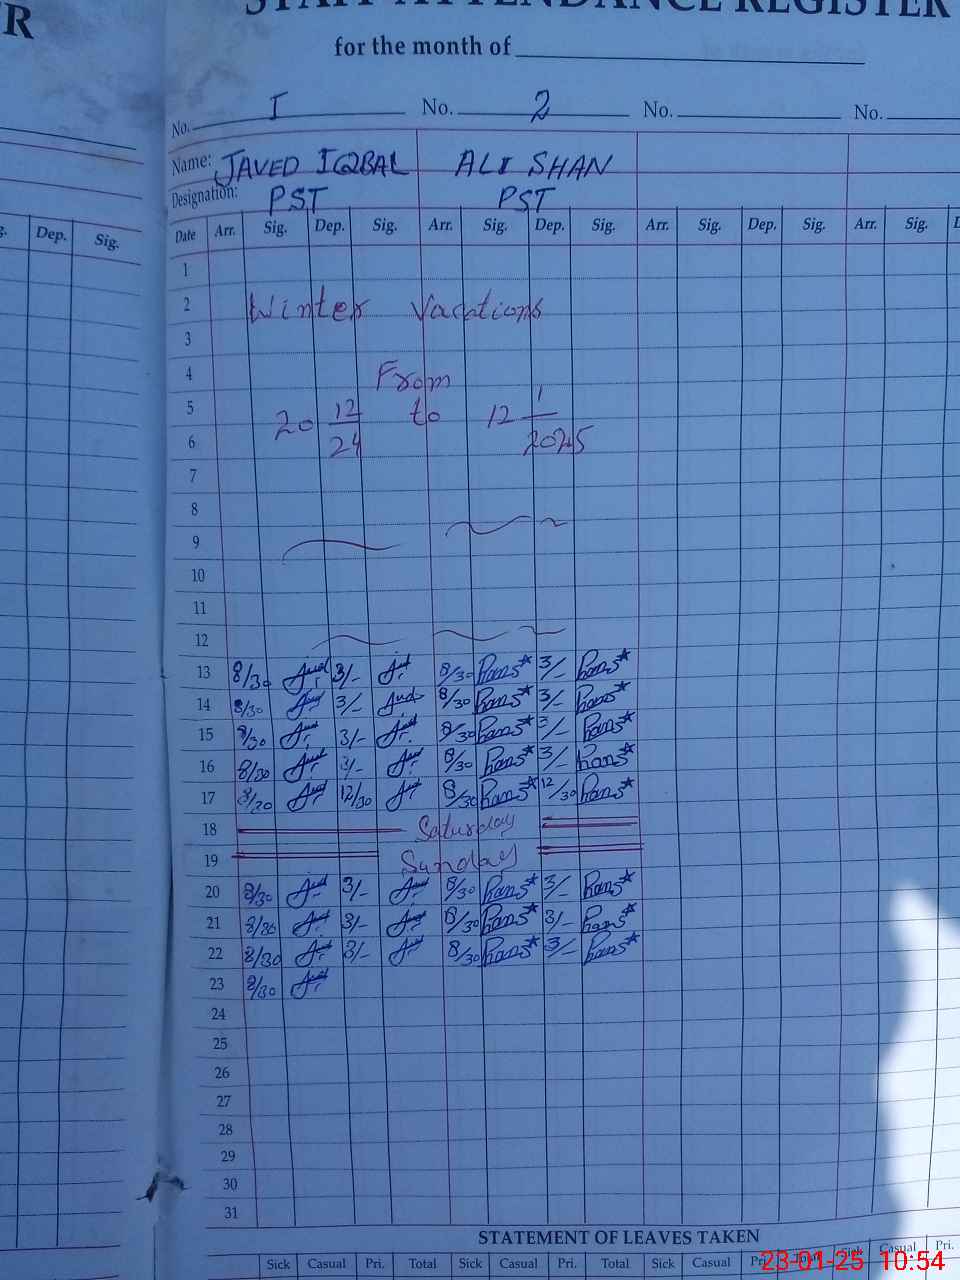 R STAFF ATTENDANCE REGISTER
for the month of
No. I No. 2 No. No.
Name: JAVED IQBAL ALI SHAN
Designation: PST PST
Dep. Sig. Date Arr. Sig. Dep. Sig. Arr. Sig. Dep. Sig. Arr. Sig. Dep. Sig. Arr. Sig.
1
2 Winter Vacations
3
4 From
5 20 12/24 to 12 1/2025
6
7
8
9
10
11
12
13 8/30 3/- 8/30 3/-
14 8/30 3/- 8/30 3/-
15 8/30 3/- 8/30 3/-
16 8/30 3/- 8/30 3/-
17 8/30 12/30 8/30 12/30
18 Saturday
19 Sunday
20 8/30 3/- 8/30 3/-
21 8/30 3/- 8/30 3/-
22 8/30 3/- 8/30 3/-
23 8/30
24
25
26
27
28
29
30
31
STATEMENT OF LEAVES TAKEN
Sick Casual Pri. Total Sick Casual Pri. Total Sick Casual Pri. Total Sick Casual Pri.
23-01-25 10:54